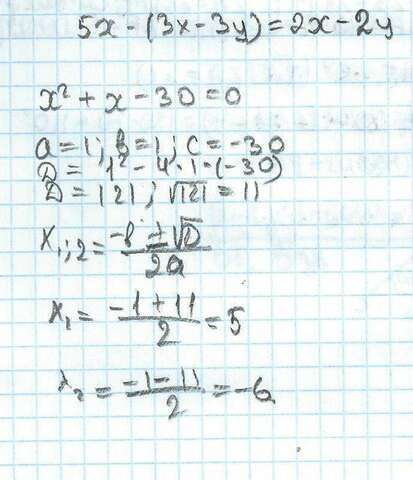 5x - (3x - 3y) = 2x - 2y
x² + x - 30 = 0
a = 1; b = 1; c = -30
D = 1² - 4·1·(-30)
D = 121; √121 = 11
x₁;₂ = (-b ± √D)/2a
x₁ = (-1 + 11)/2 = 5
x₂ = (-1 - 11)/2 = -6